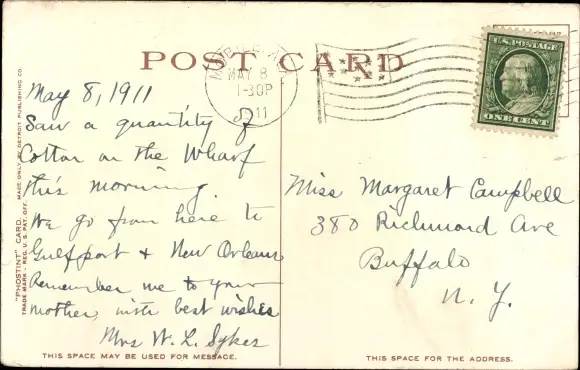 POST CARD
MOBILE, ALA.
MAY 8
1-30P
1911
U.S. POSTAGE
ONE CENT
"PHOSTINT" CARD. MADE ONLY BY DETROIT PUBLISHING CO.
TRADE MARK - REG. U. S. PAT. OFF.
May 8, 1911
Saw a quantity of
Cotton on the Wharf
this morning.
We go from here to
Gulfport & New Orleans
Remember me to your
mother, with best wishes
Mrs W. L. Sykes
THIS SPACE MAY BE USED FOR MESSAGE.
Miss Margaret Campbell
380 Richmond Ave
Buffalo
N. Y.
THIS SPACE FOR THE ADDRESS.